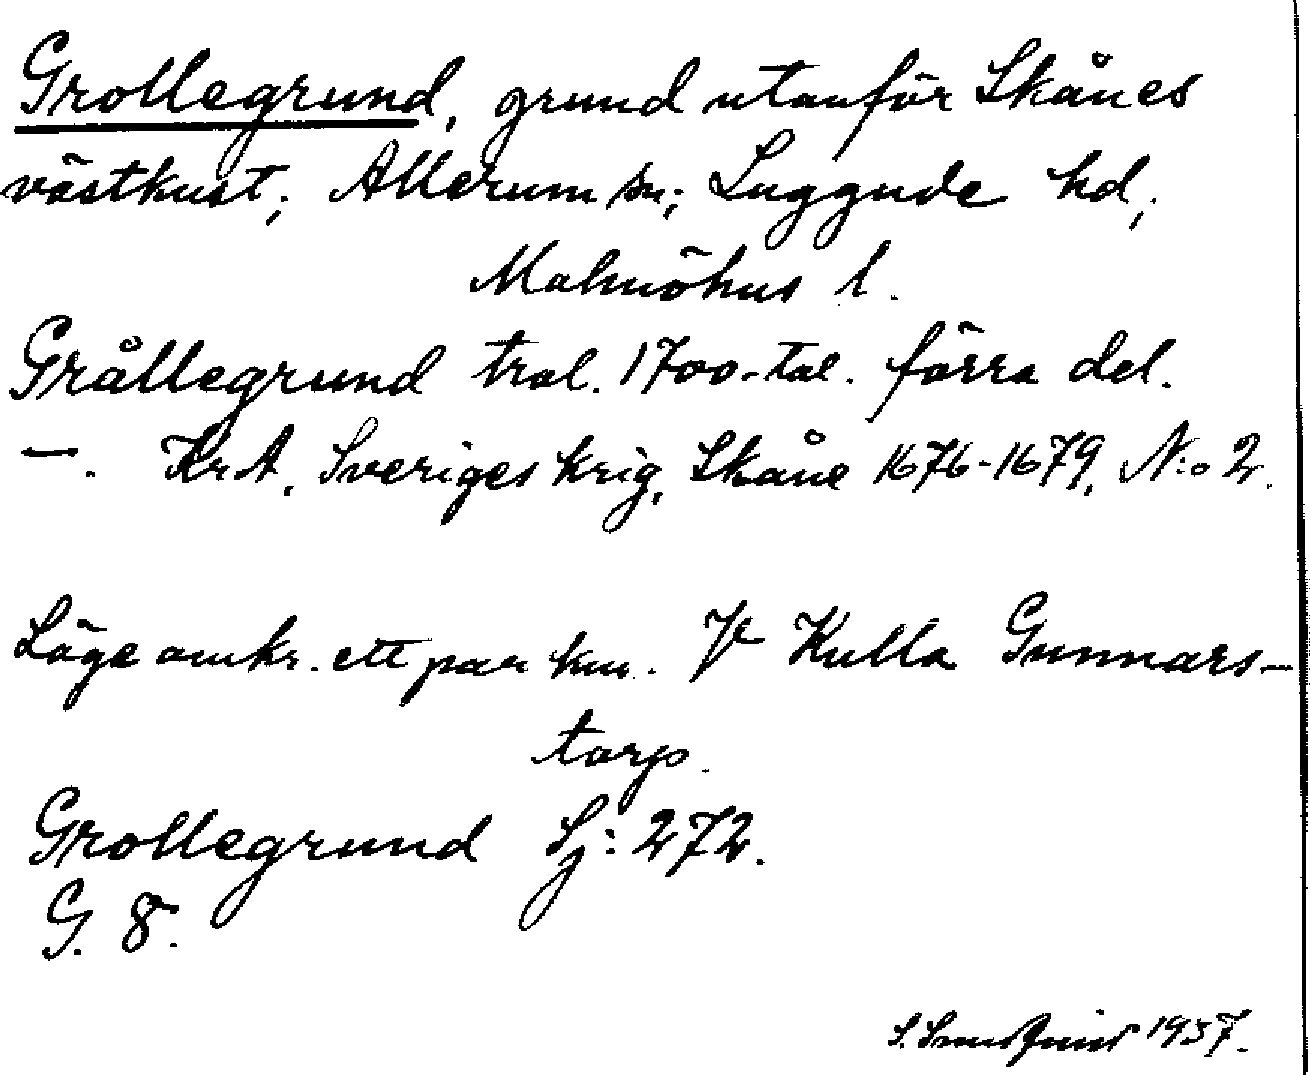 Grollegrund, grund utanför Skånes
västkust; Allerum sn; Luggude hd,
Malmöhus l.
Grållegrund trol. 1700-tal. förra del.
—. KrA, Sveriges krig, Skåne 1676-1679, N:o 2.
Läge omkr. ett par km. V Kulla Gunnars-
torp.
Grollegrund Sj: 272.
G. 8.
S. 1937.